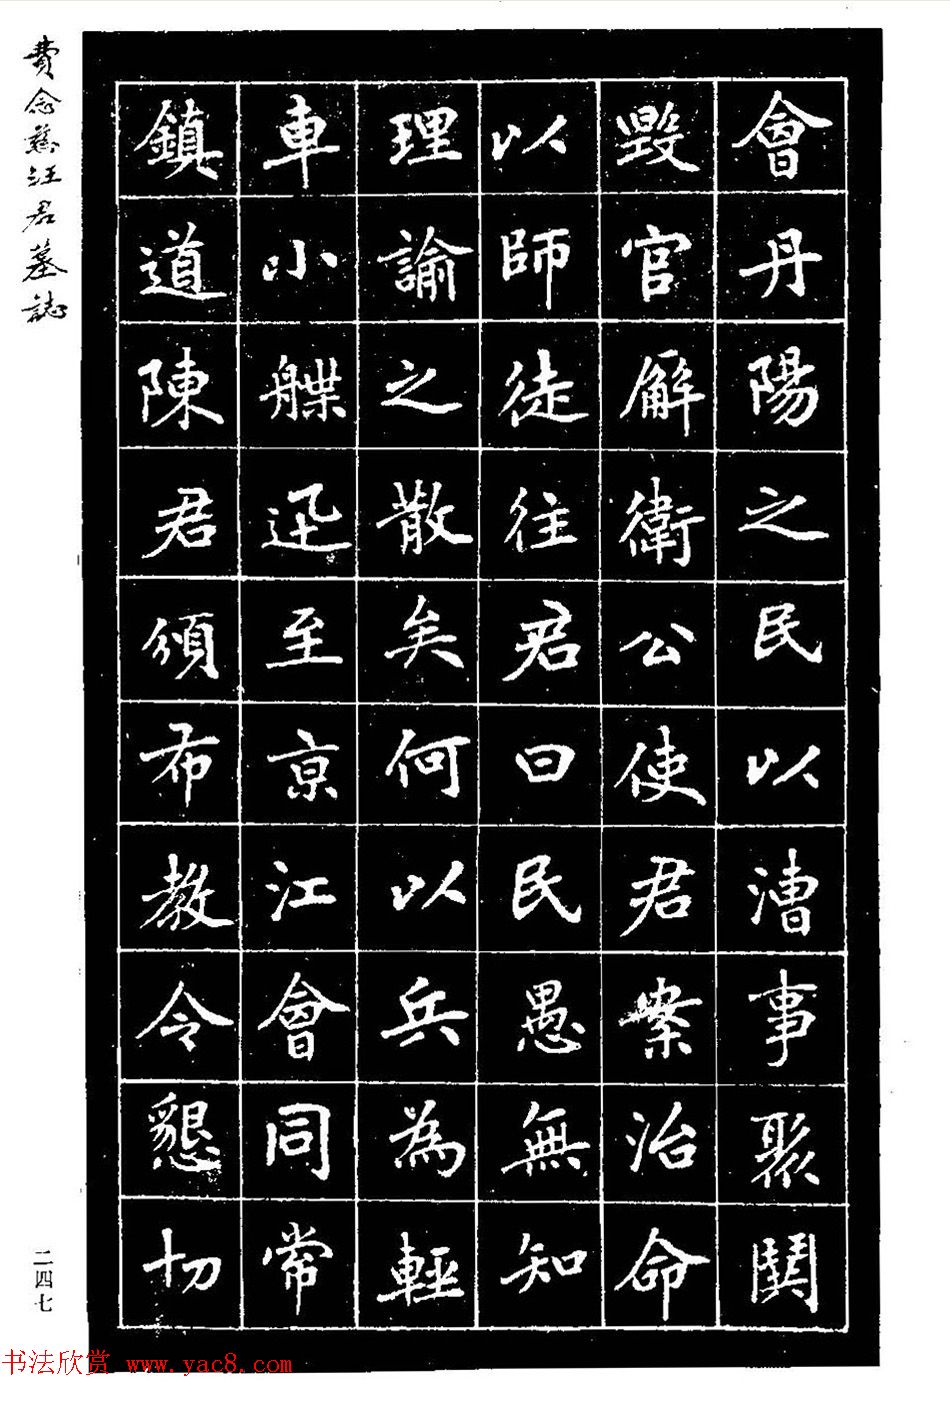 會丹陽之民以漕事聚鬬
毀官廨衛公使君案治命
以師徒往君曰民愚無知
理諭之散矣何以兵為輕
車小艓迅至京江會同常
鎮道陳君頒布教令懇切
費念慈汪君墓誌
二四七
书法欣赏 www.yac8.com